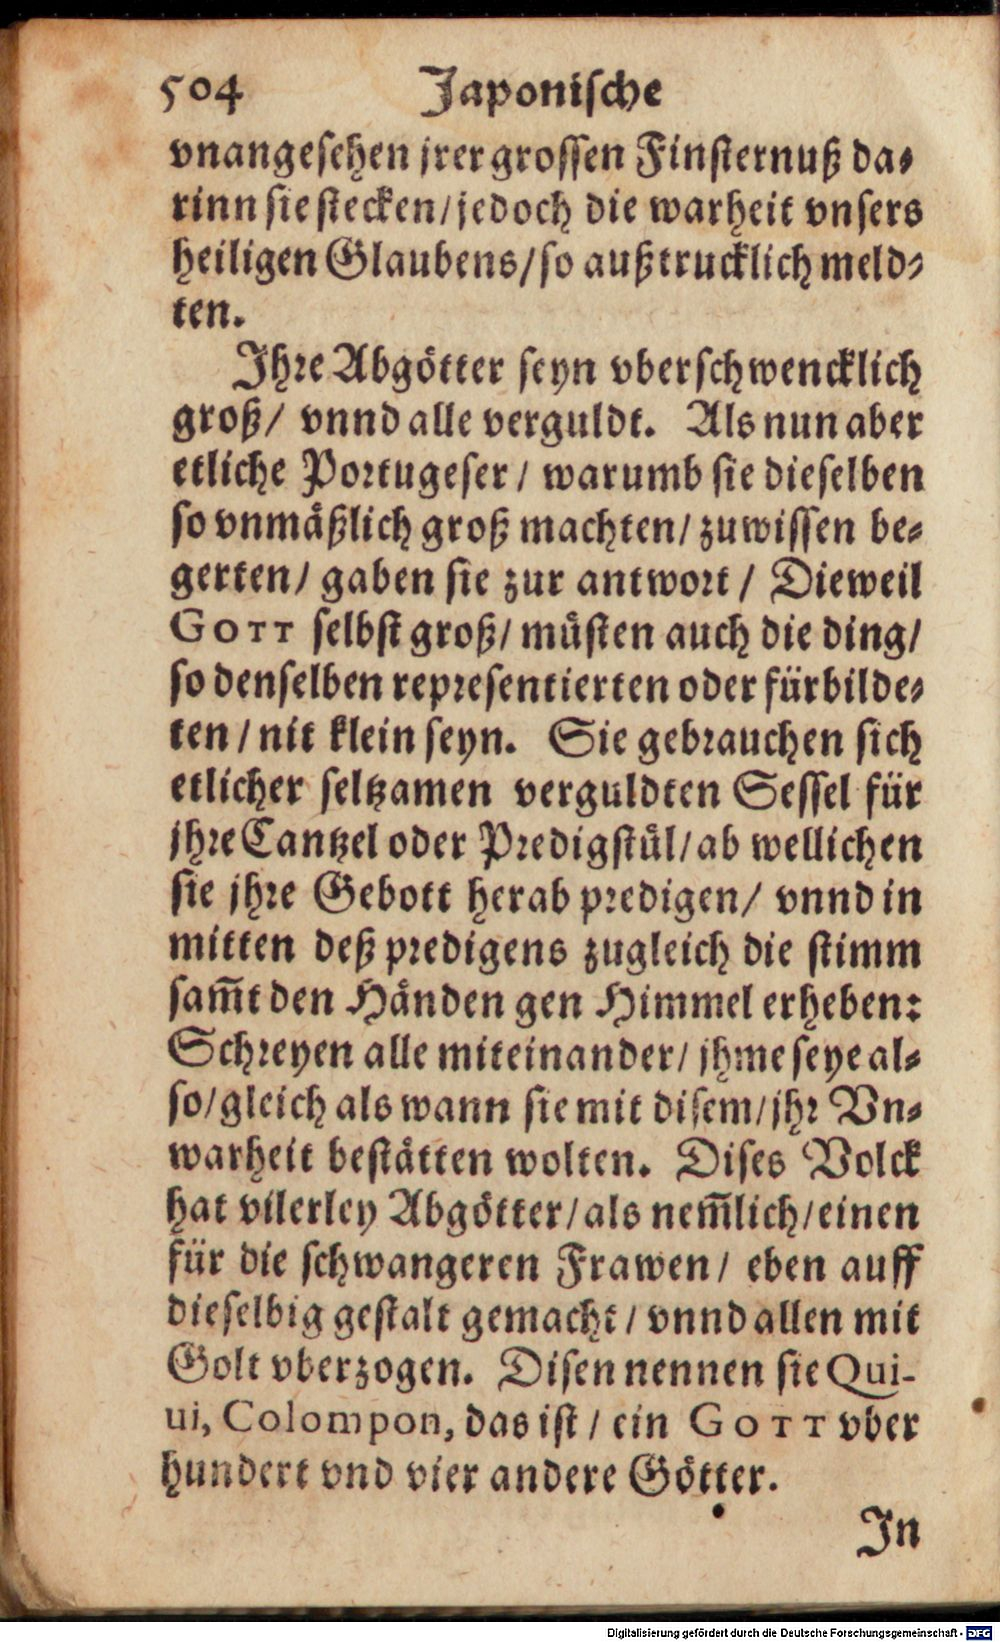 504 Japonische
vnangesehen jrer grossen Finsternuß da-
rinn sie stecken/ jedoch die warheit vnsers
heiligen Glaubens/ so außtrucklich meld-
ten.
Ihre Abgötter seyn vberschwencklich
groß/ vnnd alle verguldt. Als nun aber
etliche Portugeser/ warumb sie dieselben
so vnmäßlich groß machten/ zuwissen be-
gerten/ gaben sie zur antwort/ Dieweil
GOTT selbst groß/ müsten auch die ding/
so denselben representierten oder fürbilde-
ten/ nit klein seyn. Sie gebrauchen sich
etlicher seltzamen verguldten Sessel für
jhre Cantzel oder Predigstül/ ab wellichen
sie jhre Gebott herab predigen/ vnnd in
mitten deß predigens zugleich die stimm
sam̃t den Händen gen Himmel erheben:
Schreyen alle miteinander/ jhme seye al-
so/ gleich als wann sie mit disem/ jhr Vn-
warheit bestätten wolten. Dises Volck
hat vilerley Abgötter/ als nem̃lich/ einen
für die schwangeren Frawen/ eben auff
dieselbig gestalt gemacht/ vnnd allen mit
Golt vberzogen. Disen nennen sie Qui-
ui, Colompon, das ist/ ein GOTT vber
hundert vnd vier andere Götter.
In
Digitalisierung gefördert durch die Deutsche Forschungsgemeinschaft - DFG